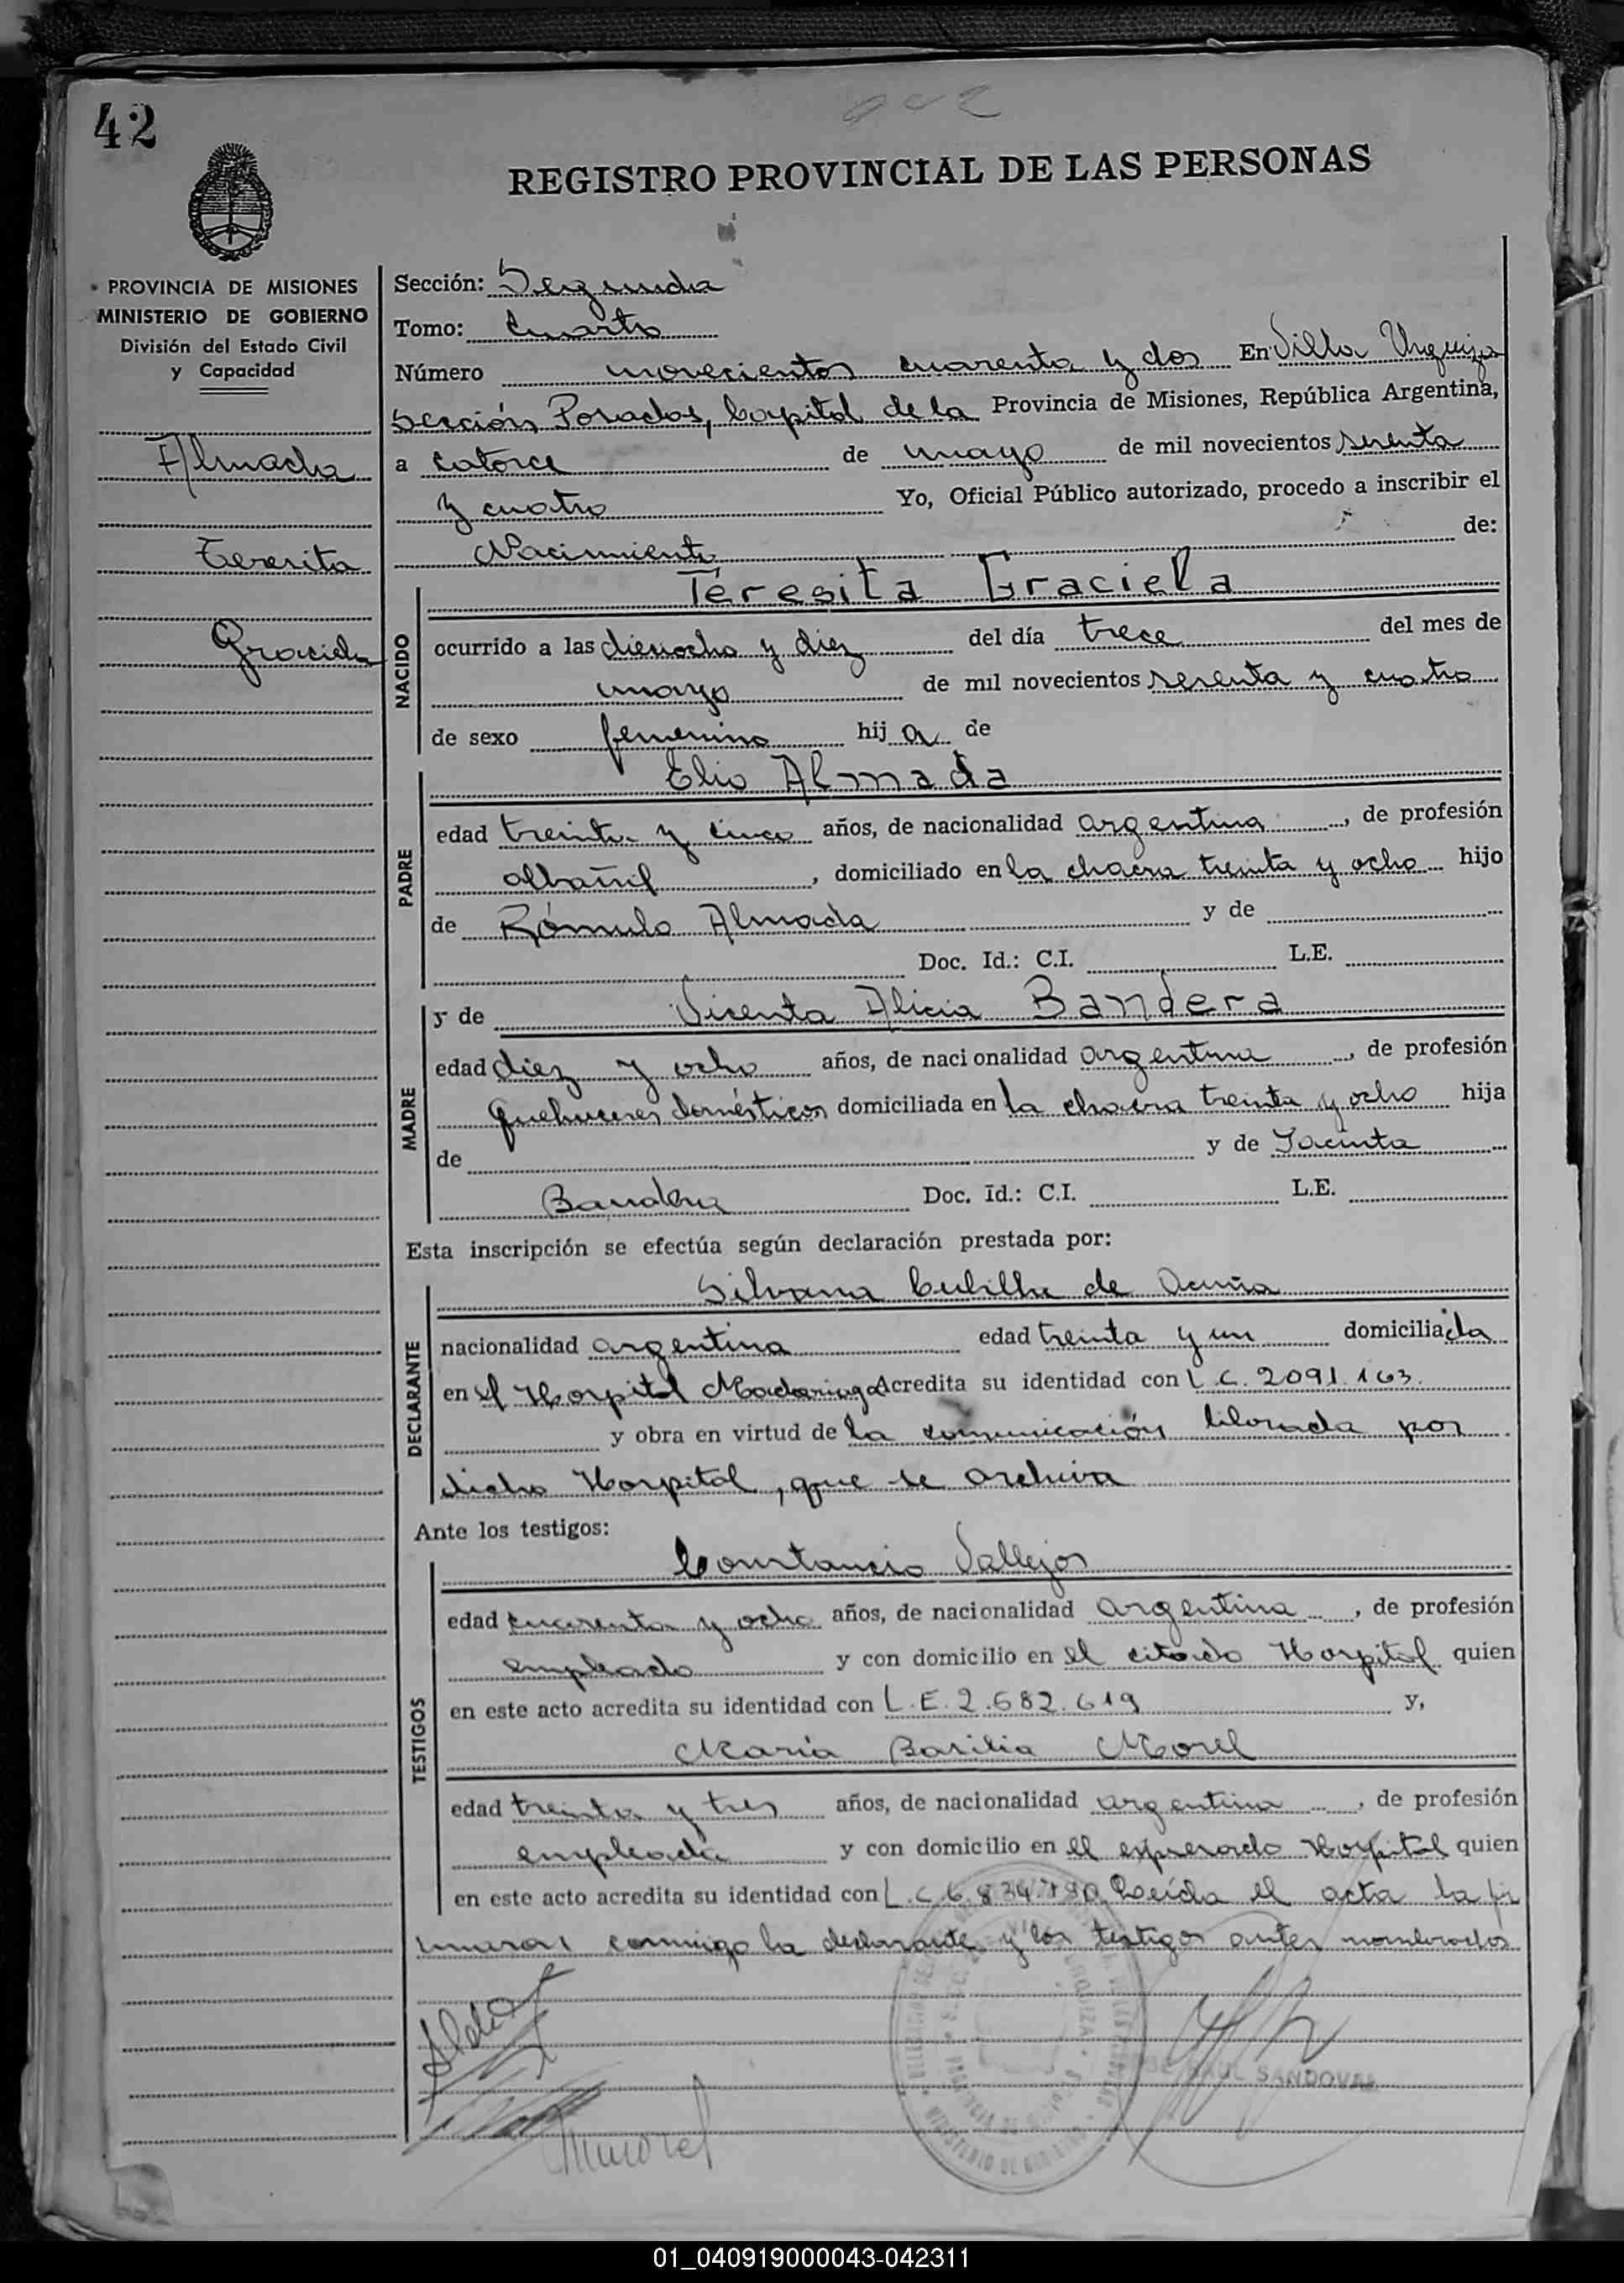 42
942
REGISTRO PROVINCIAL DE LAS PERSONAS
PROVINCIA DE MISIONES
MINISTERIO DE GOBIERNO
División del Estado Civil
y Capacidad
Almada
Teresita
Graciela
Sección: Segunda
Tomo: Cuarto
Número novecientos cuarenta y dos En Villa Urquiza
Sección Posadas, Capital de la Provincia de Misiones, República Argentina,
a catorce de mayo de mil novecientos sesenta
y cuatro Yo, Oficial Público autorizado, procedo a inscribir el
Nacimiento de:
Teresita Graciela
NACIDO
ocurrido a las dieciocho y diez del día trece del mes de
mayo de mil novecientos sesenta y cuatro
de sexo femenino hija de
Elio Almada
PADRE
edad treinta y cinco años, de nacionalidad argentina, de profesión
albañil, domiciliado en la chacra treinta y ocho hijo
de Rómulo Almada y de
Doc. Id.: C.I. L.E.
y de Vicenta Alicia Bandera
MADRE
edad diez y ocho años, de nacionalidad argentina, de profesión
quehaceres domésticos domiciliada en la chacra treinta y ocho hija
de y de Jacinta
Bandera Doc. Id.: C.I. L.E.
Esta inscripción se efectúa según declaración prestada por:
Silvana Cubilla de Acuña
DECLARANTE
nacionalidad argentina edad treinta y un domiciliada
en el Hospital Madariaga Acredita su identidad con L C. 2091.163.
y obra en virtud de la comunicación librada por
dicho Hospital, que se archiva
Ante los testigos:
Constancio Vallejos
TESTIGOS
edad cuarenta y ocho años, de nacionalidad argentina, de profesión
empleado y con domicilio en el citado Hospital quien
en este acto acredita su identidad con L.E. 2.682.619 y,
María Basilia Morel
edad treinta y tres años, de nacionalidad argentina, de profesión
empleada y con domicilio en el expresado Hospital quien
en este acto acredita su identidad con L.C. 6.834.190. Leída el acta la fir
maron conmigo la declarante y los testigos antes nombrados
RAUL SANDOVAL
01_040919000043-042311